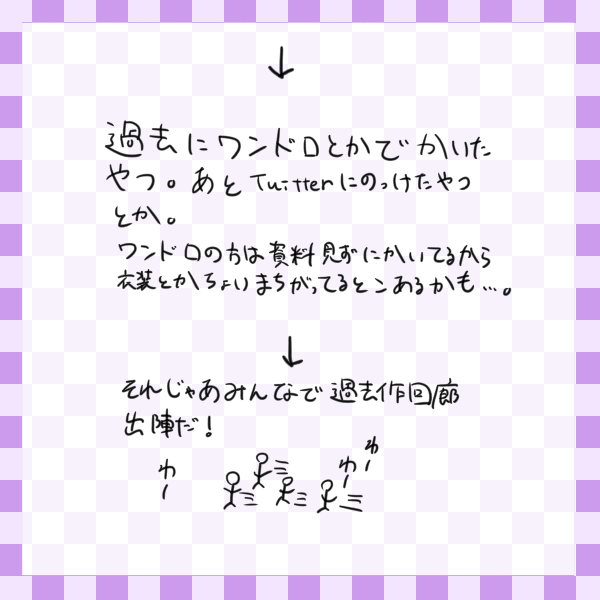 ↓
過去にワンドロとかでかいた
やつ。あとTwitterにのっけたやつ
とか。
ワンドロの方は資料見ずにかいてるから
衣装とかちょいまちがってるとこあるかも…。
↓
それじゃあみんなで過去作回廊
出陣だ!
わー わー わー